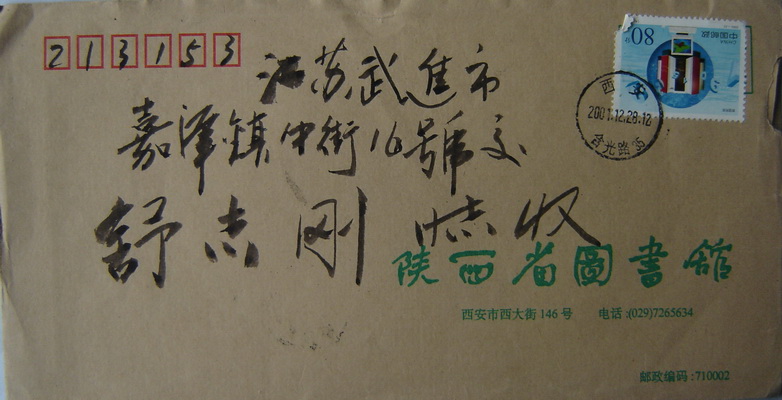 213153
江苏武進市
嘉澤镇中街16號交
舒志刚 收
陕西省圖書館
西安市西大街146号 电话:(029)7265634
邮政编码:710002
80分
中国邮政
CHINA
西安
2001.12.28.12
含光路